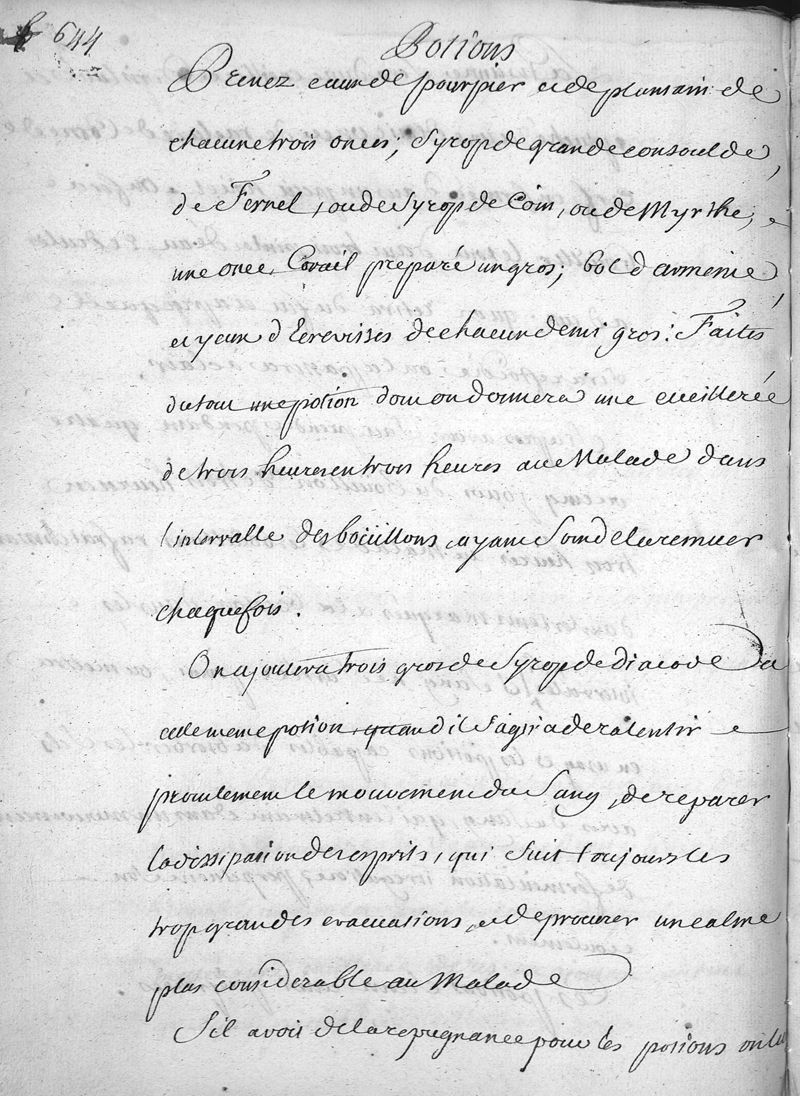 644
Potions
Prenez eaux de pourpier et de plantain de
chacune trois onces, Syrop de grande consoulde
de Fernel, ou de Syrop de Coin, ou de Myrthe,
une once, Corail preparé un gros; bol d'armenie
et yeux d'Ecrevisses de chacun demi gros. Faites
du tout une potion dont on donnera une cueillerée
de trois heures en trois heures au Malade dans
l'intervalle des boüillons, ayant Soin de la remuer
chaque fois.
On ajoutera trois gros de Syrop de diacode a
cette meme potion, quand il S'agira de ralentir
promtement le mouvement du Sang, de reparer
la dissipation des esprits, qui Suit toujours les
trop grandes evacuations, et de procurer un calme
plus considerable au Malade
S'il avoit de la repugnance pour les potions on